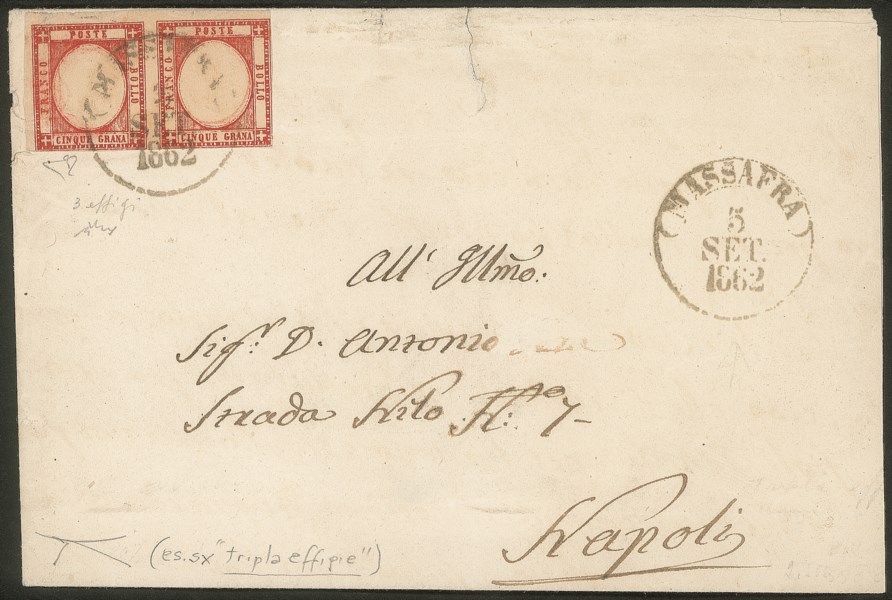 POSTE POSTE
FRANCO BOLLO FRANCO BOLLO
CINQUE GRANA CINQUE GRANA
SET
1862
3 effigi
(MASSAFRA)
5
SET.
1862
All' Illmo:
Sigr. D. Antonio
Strada Nilo No. 7-
Napoli
(es. sx "tripla effigie")